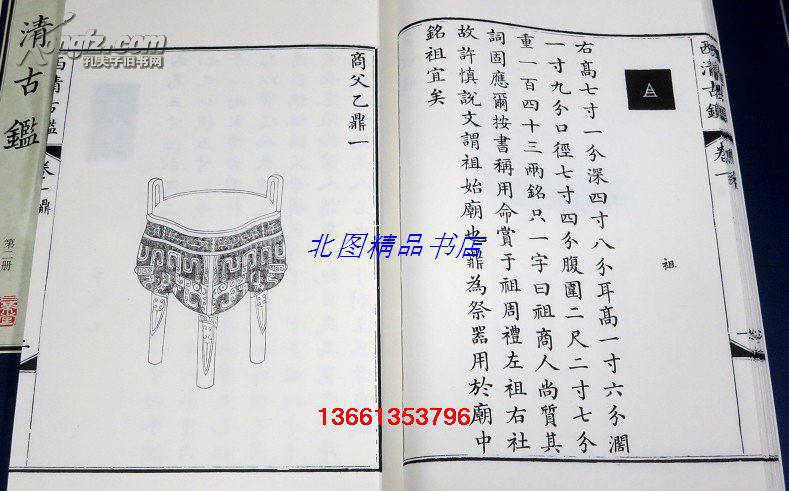 西清古鑑
卷一
祖
右高七寸一分深四寸八分耳高一寸六分濶
一寸九分口徑七寸四分腹圍二尺二寸七分
重一百四十三兩銘只一字曰祖商人尚質其
詞固應爾按書稱用命賞于祖周禮左祖右社
故許慎說文謂祖始廟也鼎為祭器用於廟中
銘祖宜矣
商父乙鼎一
西清古鑑
卷一鼎
清古鑑
第二册
Kongfz.com
孔夫子旧书网
北图精品书店
13661353796